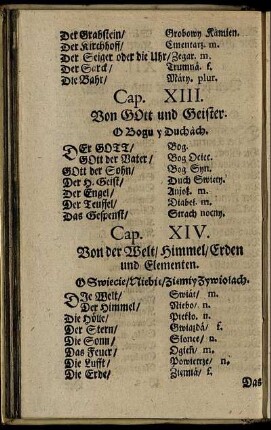 Der Grabstein/ Grobowy Kámien.
Der Kirchhoff/ Cmentarz. m.
Der Seiger oder die Uhr/ Zegar. m.
Der Sarck/ Trumná. f.
Die Bahr/ Máry. plur.
Cap. XIII.
Von GOtt und Geister.
O Bogu y Duchách.
DEr GOTT/ Bog.
GOtt der Vater/ Bog Ociec.
GOtt der Sohn/ Bog Syn.
Der H. Geist/ Duch Swiety.
Der Engel/ Anjoł. m.
Der Teuffel/ Diabeł. m.
Das Gespenst/ Strach nocny.
Cap. XIV.
Von der Welt/ Himmel/ Erden
und Elementen.
O Swiecie/ Niebie/ Ziemi y Zywiołach.
DIe Welt/ Swiát/ m.
Der Himmel/ Niebo/ n.
Die Hölle/ Piekło. n.
Der Stern/ Gwiazdá/ f.
Die Sonn/ Słonce/ n.
Das Feuer/ Ogień/ m.
Die Lufft/ Powietrze/ n.
Die Erde/ Ziemiá/ f.
Das